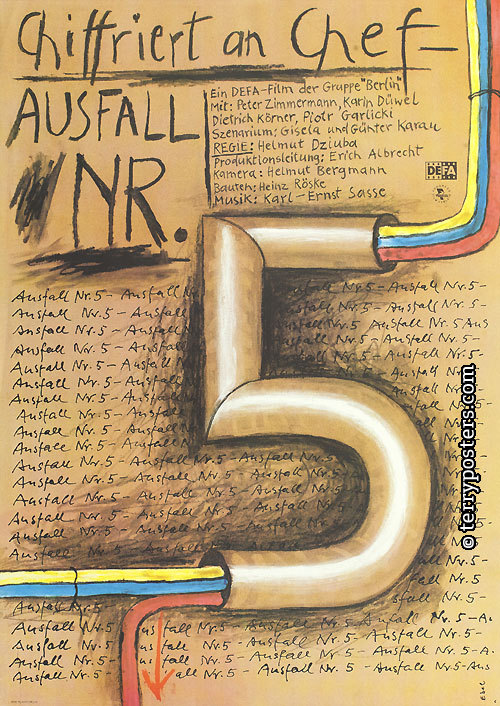 Chiffriert an Chef–
AUSFALL
NR.
5
Ein DEFA-Film der Gruppe "Berlin"
Mit: Peter Zimmermann, Karin Düwel
Dietrich Körner, Piotr Garlicki
Szenarium: Gisela und Günter Karau
REGIE: Helmut Dziuba
Produktionsleitung: Erich Albrecht
Kamera: Helmut Bergmann
Bauten: Heinz Röske
Musik: Karl-Ernst Sasse
DEFA
Ausfall Nr. 5 – Ausfall N Ausfall Nr. 5 –
Ausfall Nr. 5 – Ausfall Ausfall Nr. 5 –
Ausfall Nr. 5 – Ausfall Nr. 5 Ausfall Nr. 5 Aus
Ausfall Nr. 5 – Ausfall Ausfall Nr. 5 –
Ausfall Nr. 5 – Ausfall Nr. 5 –
Ausfall Nr. 5 – Ausfall Nr. 5
Ausfall Nr. 5 – Ausfall
Ausfall Nr. 5 – Ausfall
Ausfall Nr. 5 – Ausfall
Ausfall Nr. 5 – Ausfall
Ausfall Nr. 5 – Ausfall Nr. 5 –
Ausfall Nr. 5 – Ausfall Nr. 5 –
Ausfall Nr. 5 – Ausfall Nr. 5 – Ausfall
Ausfall Nr. 5 – Ausfall Nr. 5 – Ausfall
Ausfall Nr. 5 – Ausfall Nr. 5 – Ausfall
Ausfall Nr. 5 – Ausfall Nr. 5
fall Nr. 5
Ausfall Nr. 5 sfall Nr. 5 –
Ausfall Nr. 5 – us fall Nr. 5 – Ausfall Nr. 5 – Ausfall Nr. 5 – A.
Ausfall Nr. 5 – us fall Nr. 5 – Ausfall Nr. 5 – Ausfall Nr. 5 –
Ausfall Nr. 5 – us fall Nr. 5 – Ausfall Nr. 5 – Ausfall Nr. 5 – A.
Ausfall Nr. 5 – all Nr. 5 – Ausfall Nr. 5 – Ausfall Nr. 5 – Aus
© terryposters.com